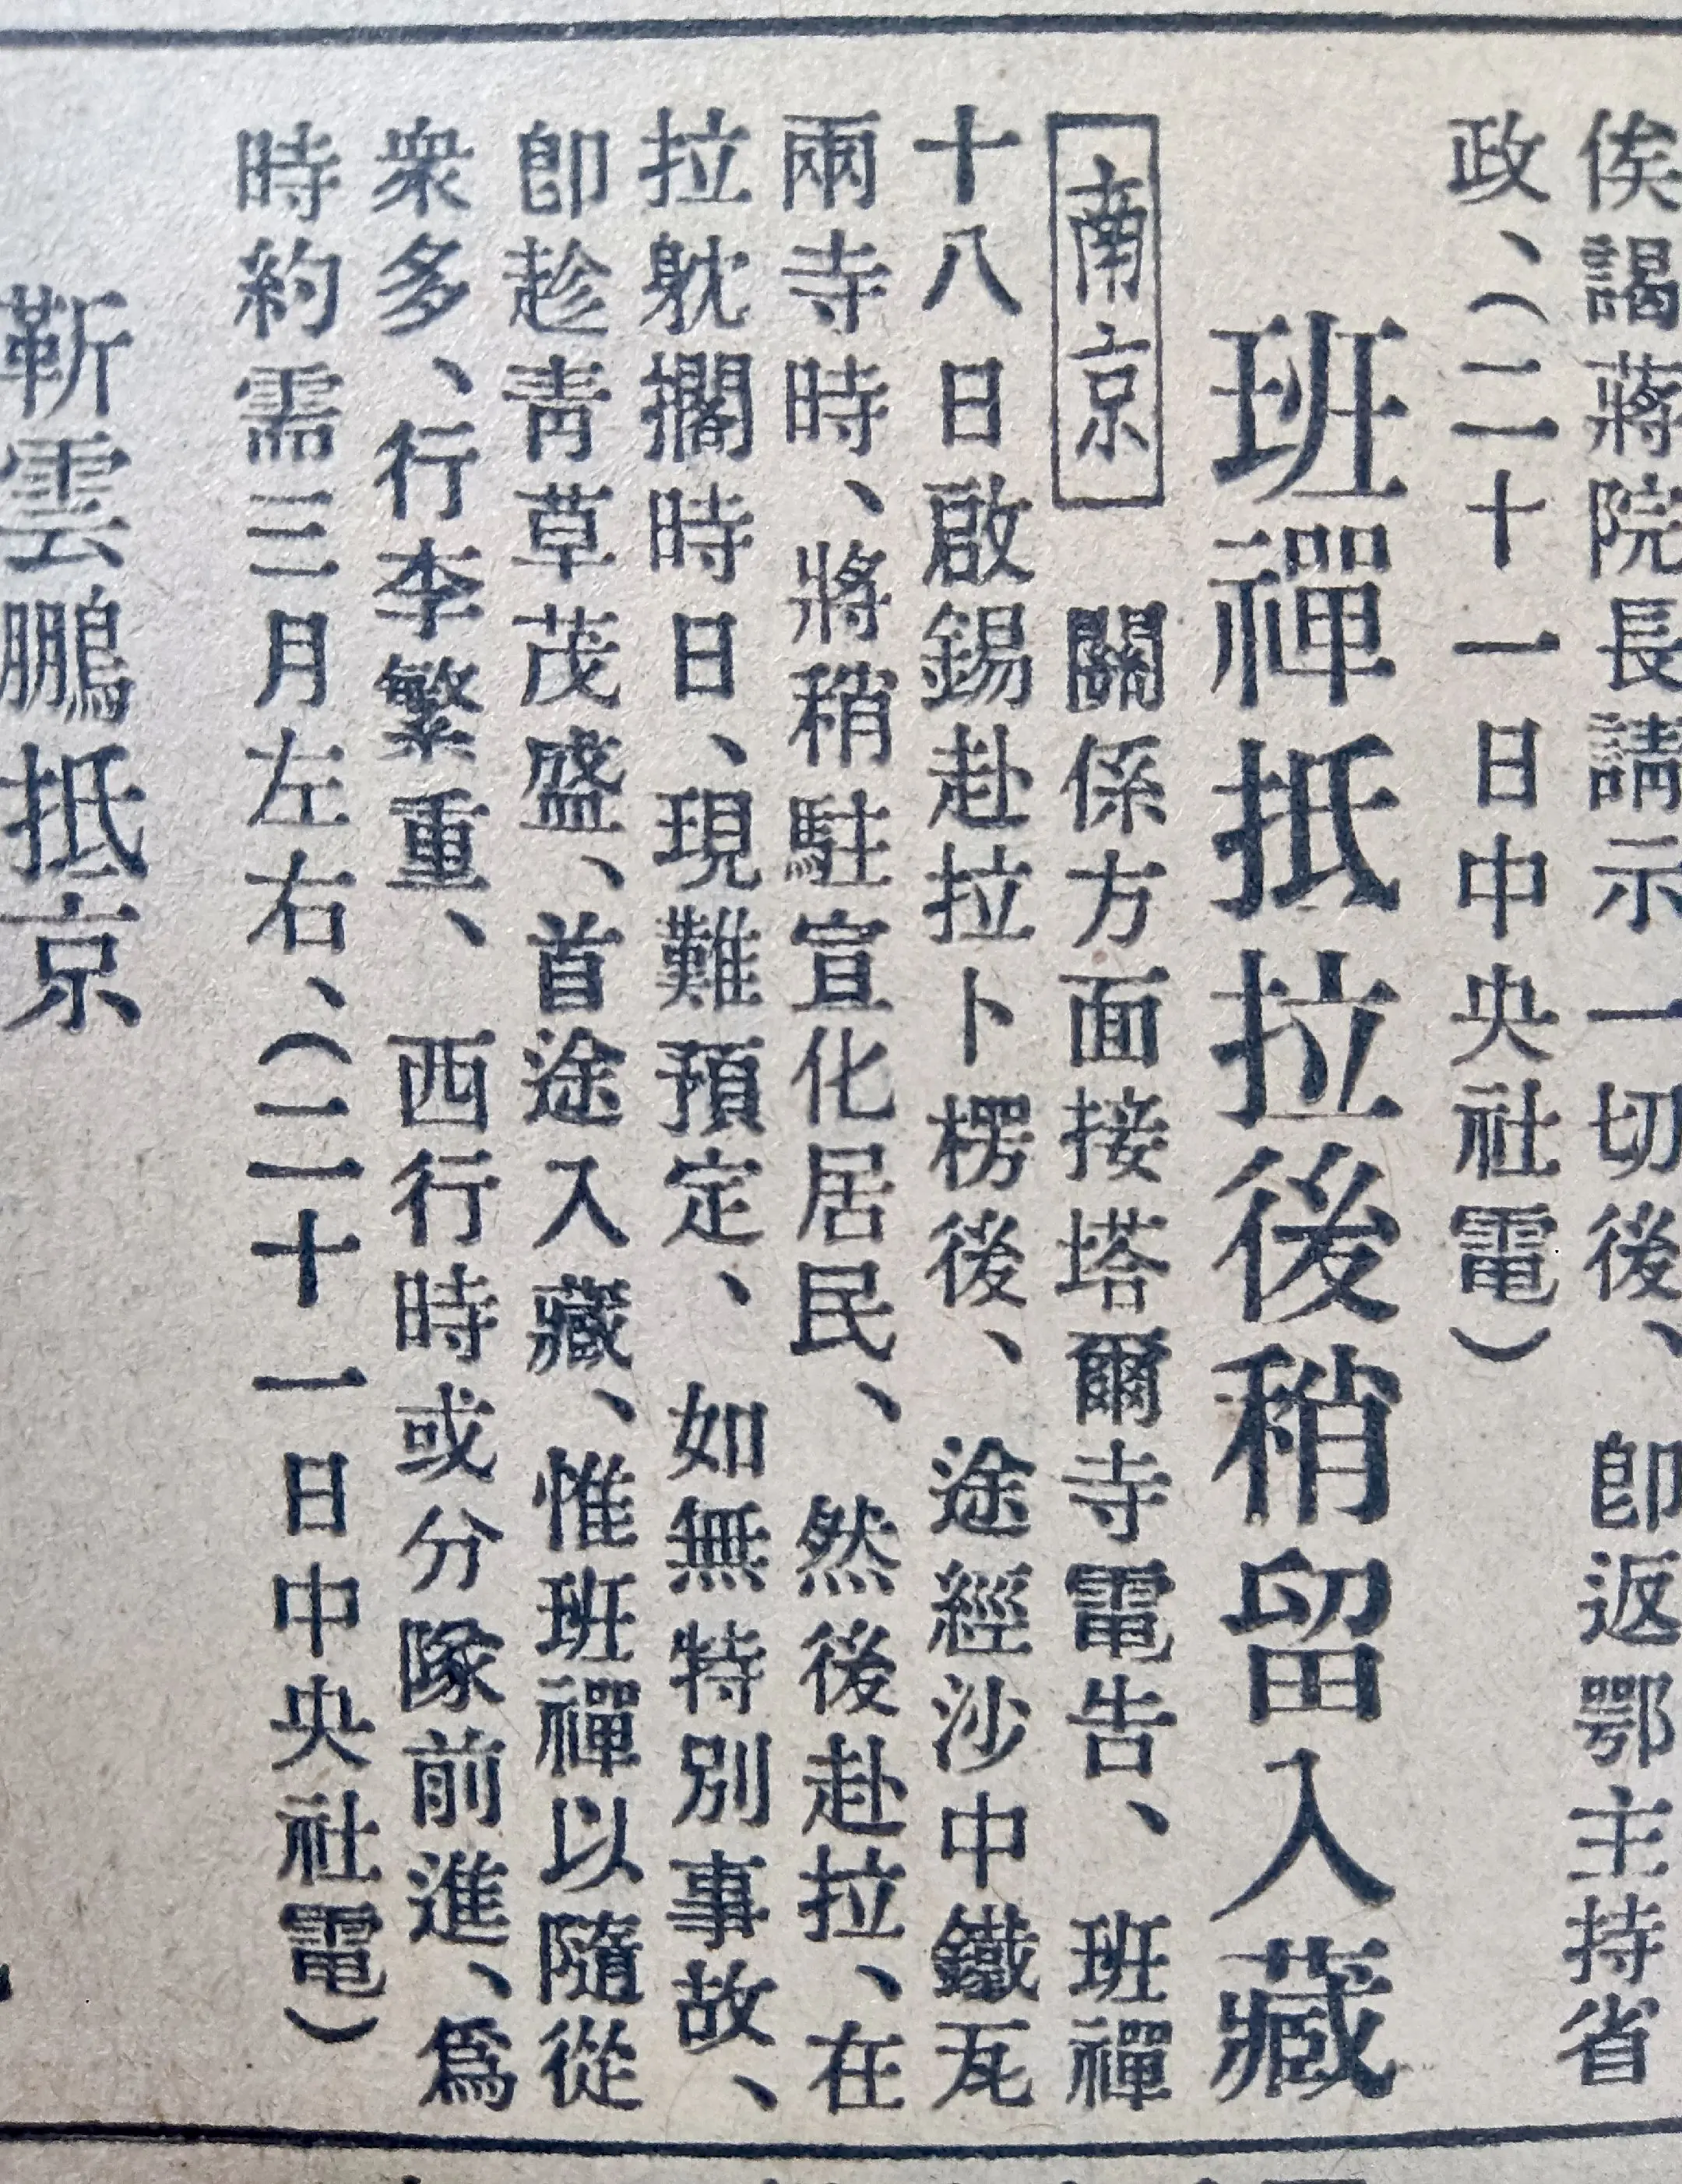 俟謁蔣院長請示一切後、卽返鄂主持省
政、（二十一日中央社電）
班禪抵拉後稍留入藏
南京　關係方面接塔爾寺電告、班禪
十八日啟錫赴拉卜楞後、途經沙中鐵瓦
兩寺時、將稍駐宣化居民、然後赴拉、在
拉躭擱時日、現難預定、如無特別事故、
卽趁靑草茂盛、首途入藏、惟班禪以隨從
衆多、行李繁重、西行時或分隊前進、爲
時約需三月左右、（二十一日中央社電）
靳雲鵬抵京